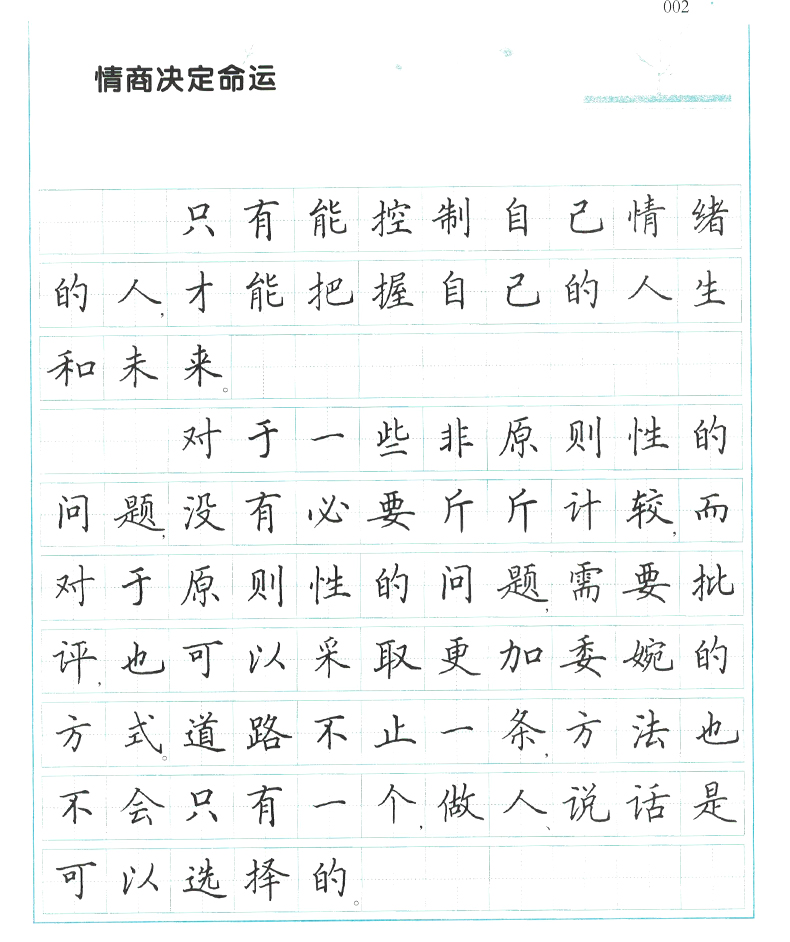 002
情商决定命运
只有能控制自己情绪
的人,才能把握自己的人生
和未来。
对于一些非原则性的
问题,没有必要斤斤计较,而
对于原则性的问题,需要批
评,也可以采取更加委婉的
方式。道路不止一条,方法也
不会只有一个,做人、说话是
可以选择的。